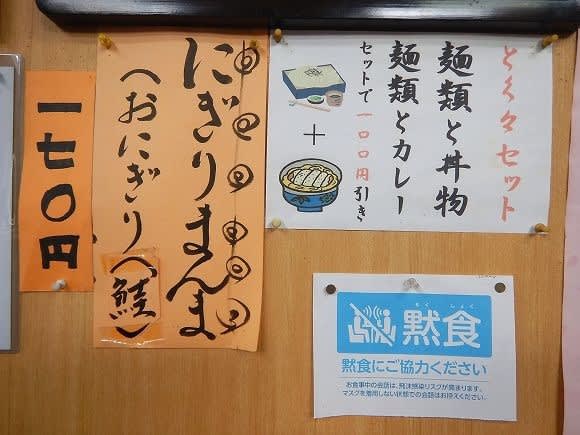 とく々セット
麺類と丼物
麺類とカレー
セットで一〇〇円引き
にぎりまんま
(おにぎり(鮭)
一七〇円
もく しょく
黙食
黙食にご協力ください
お食事中の会話は、飛沫感染リスクが高まります。
マスクを着用しない状態での会話はお控えください。